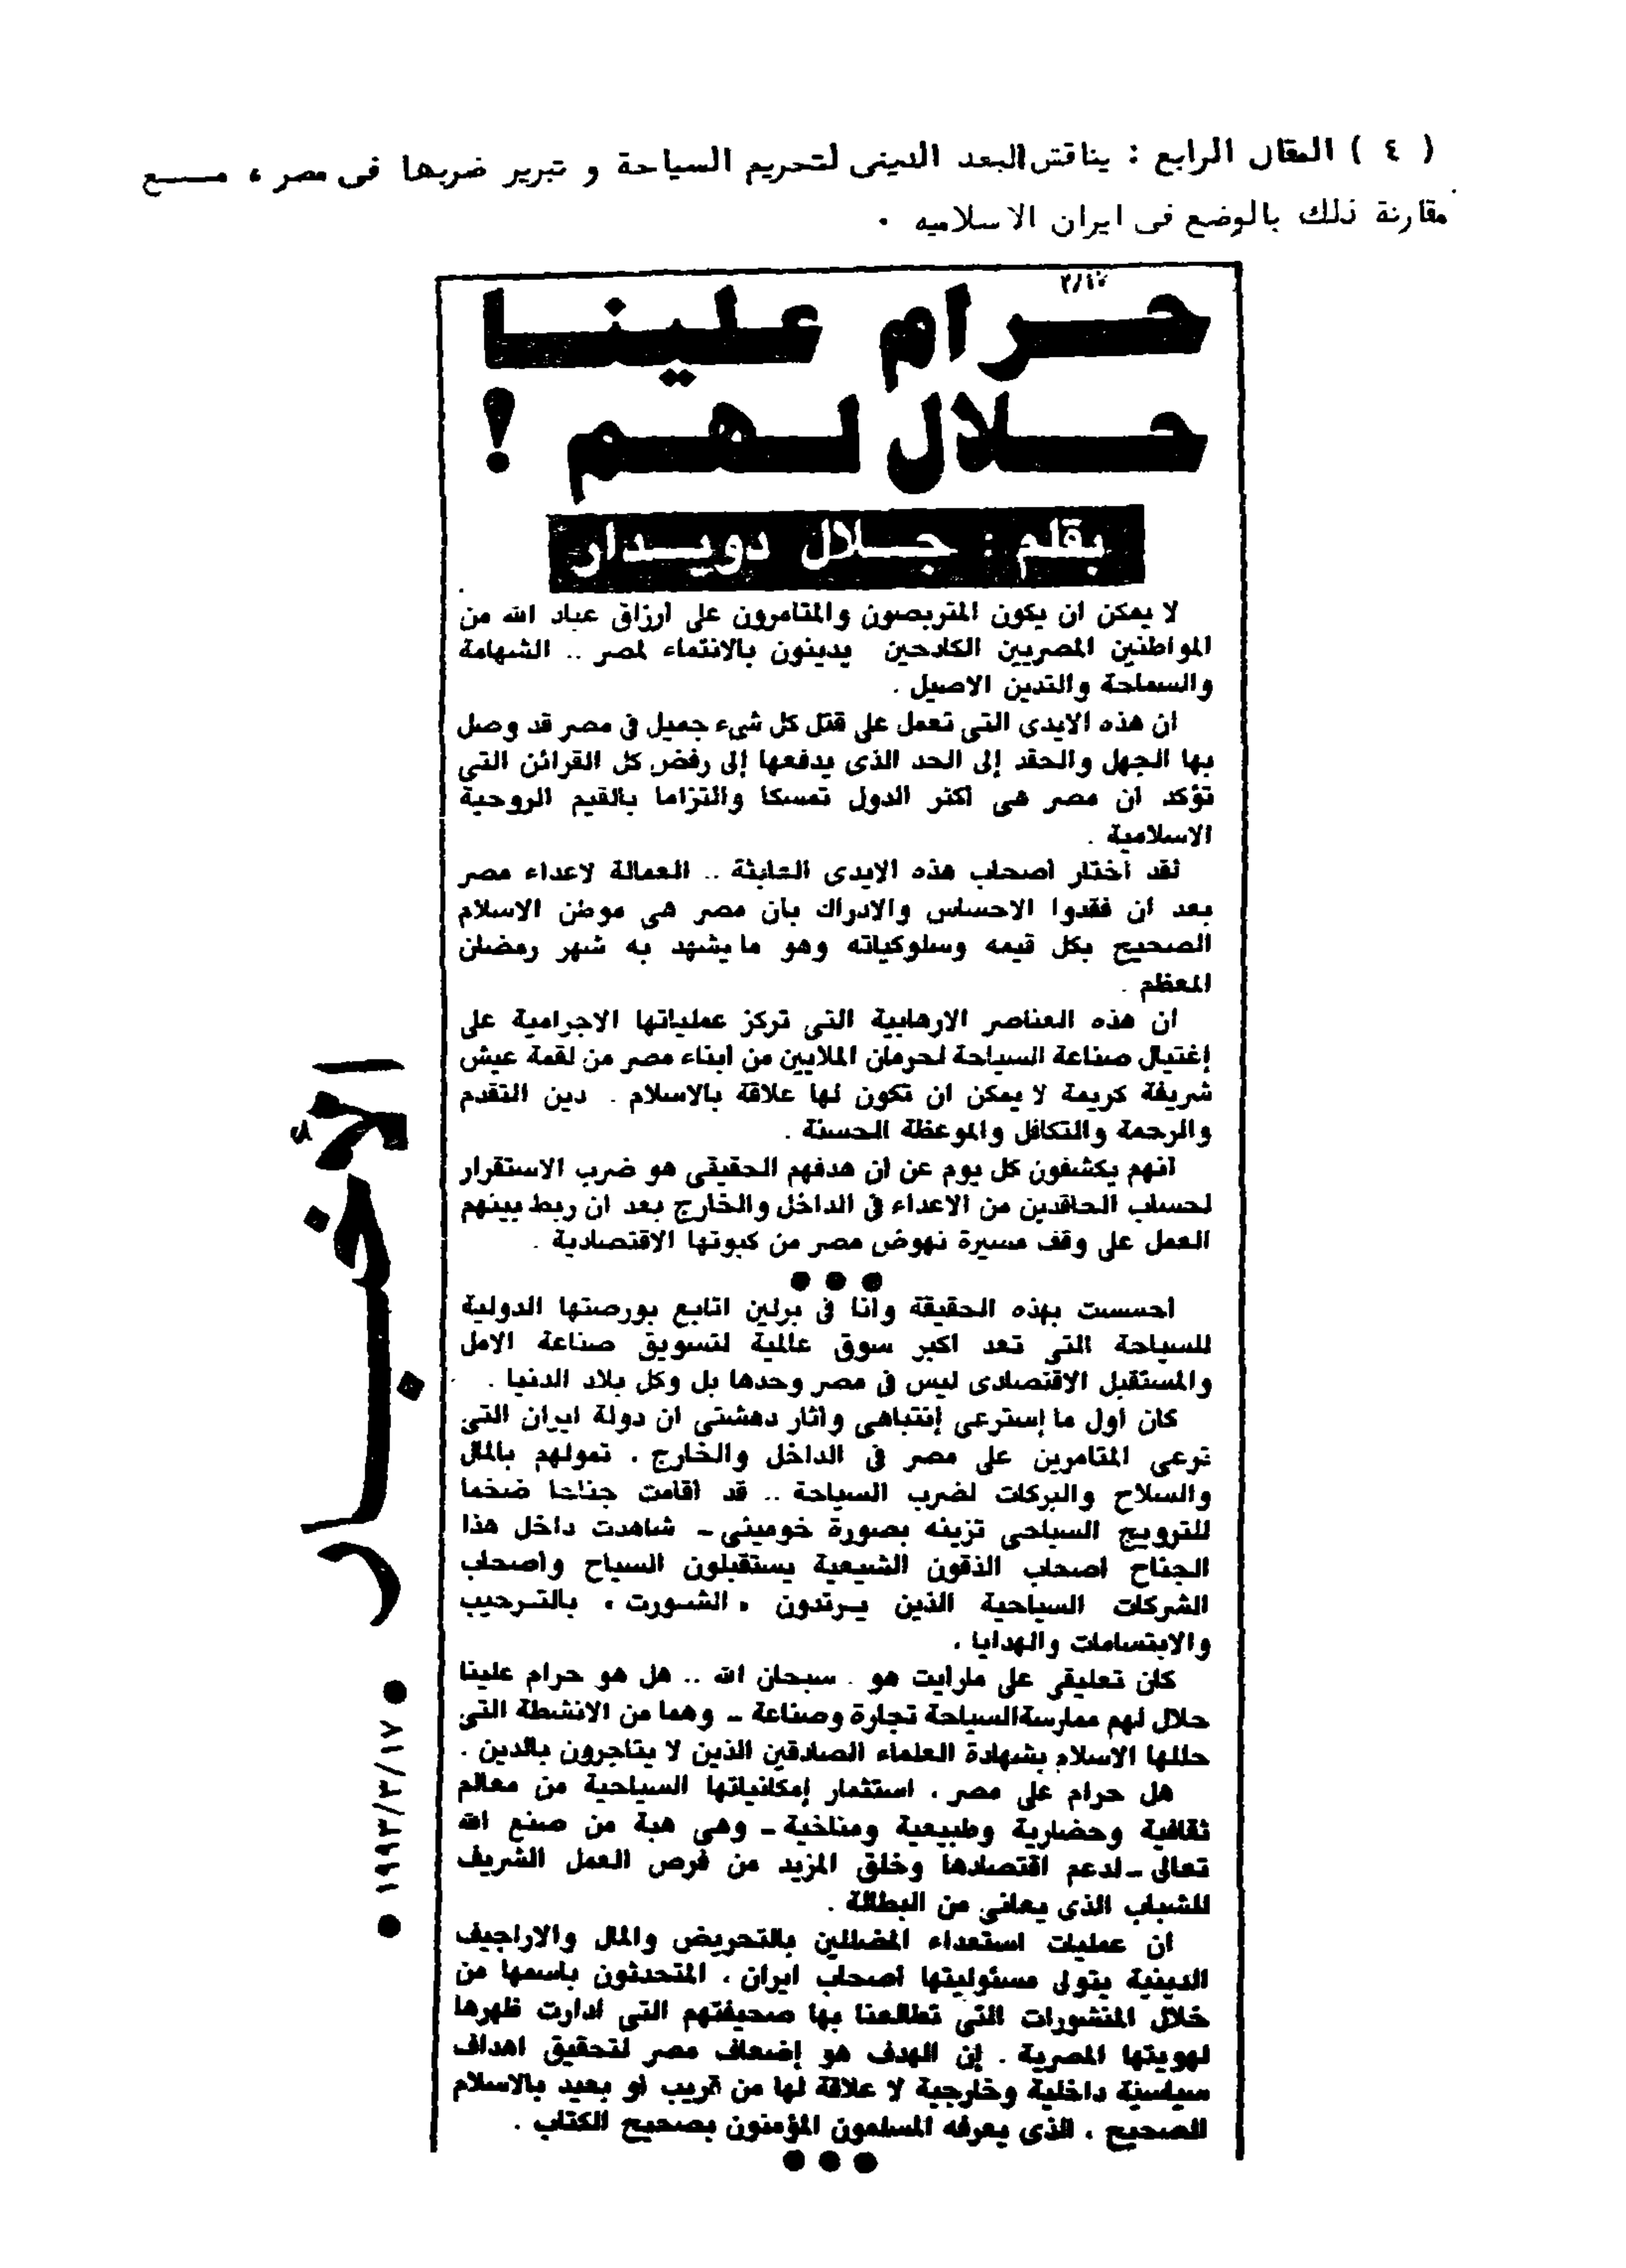 ( ٤ ) المقال الرابع : يناقش البعد الدينى لتحريم السياحة و تبرير ضربها فى مصر ، مـــع
مقارنة ذلك بالوضع فى ايران الاسلاميه .
حرام علينا
حلال لهم !
بقلم : جلال دويدار
لا يمكن ان يكون المتربصون والمتامرون على أرزاق عباد الله من
المواطنين المصريين الكادحين يدينون بالانتماء لمصر .. الشهامة
والسماحة والتدين الاصيل .
ان هذه الايدى التى تعمل على قتل كل شىء جميل فى مصر قد وصل
بها الجهل والحقد إلى الحد الذى يدفعها إلى رفض كل القرائن التى
تؤكد أن مصر هى أكثر الدول تمسكا والتزاما بالقيم الروحية
الاسلامية .
لقد أختار أصحاب هذه الايدى العابثة .. العمالة لاعداء مصر
بعد ان فقدوا الاحساس والادراك بان مصر هى موطن الاسلام
الصحيح بكل قيمه وسلوكياته وهو مايشهد به شهر رمضان
المعظم .
ان هذه العناصر الارهابية التى تركز عملياتها الاجرامية على
إغتيال صناعة السياحة لحرمان الملايين من ابناء مصر من لقمة عيش
شريفة كريمة لا يمكن ان تكون لها علاقة بالاسلام . دين التقدم
والرحمة والتكافل والموعظة الحسنة .
أنهم يكشفون كل يوم عن ان هدفهم الحقيقى هو ضرب الاستقرار
لحساب الحاقدين من الاعداء فى الداخل والخارج بعد ان ربط بينهم
العمل على وقف مسيرة نهوض مصر من كبوتها الاقتصادية .
● ● ●
أحسست بهذه الحقيقة وأنا فى برلين اتابع بورصتها الدولية
للسياحة التى تعد اكبر سوق عالمية لتسويق صناعة الامل
والمستقبل الاقتصادى ليس فى مصر وحدها بل وكل بلاد الدنيا .
كان أول ما إسترعى إنتباهى وأثار دهشتى ان دولة ايران التى
ترعى المتامرين على مصر فى الداخل والخارج . تمولهم بالمال
والسلاح والبركات لضرب السياحة .. قد أقامت جناحا ضخما
للترويج السياحى تزينه بصورة خومينى - شاهدت داخل هذا
الجناح اصحاب الذقون الشيعية يستقبلون السياح وأصحاب
الشركات السياحية الذين يرتدون « الشورت » بالترحيب
والابتسامات والهدايا .
كان تعليقى على مارأيت هو . سبحان الله .. هل هو حرام علينا
حلال لهم ممارسة السياحة تجارة وصناعة - وهما من الانشطة التى
حللها الاسلام بشهادة العلماء الصادقين الذين لا يتاجرون بالدين .
هل حرام على مصر ، استثمار إمكانياتها السياحية من معالم
ثقافية وحضارية وطبيعية ومناخية - وهى هبة من صنع الله
تعالى - لدعم اقتصادها وخلق المزيد من فرص العمل الشريف
للشباب الذى يعانى من البطالة .
ان عمليات استعداء المضللين بالتحريض والمال والاراجيف
الدينية يتولى مسئوليتها أصحاب ايران ، المتحدثون باسمها من
خلال المنشورات التى تطالعنا بها صحيفتهم التى ادارت ظهرها
لهويتها المصرية . إن الهدف هو إضعاف مصر لتحقيق اهداف
سياسية داخلية وخارجية لا علاقة لها من قريب او بعيد بالاسلام
الصحيح ، الذى يعرفه المسلمون المؤمنون بصحيح الكتاب .
● ● ●
الأخبار
● ١٩٩٣/٣/١٧ ●